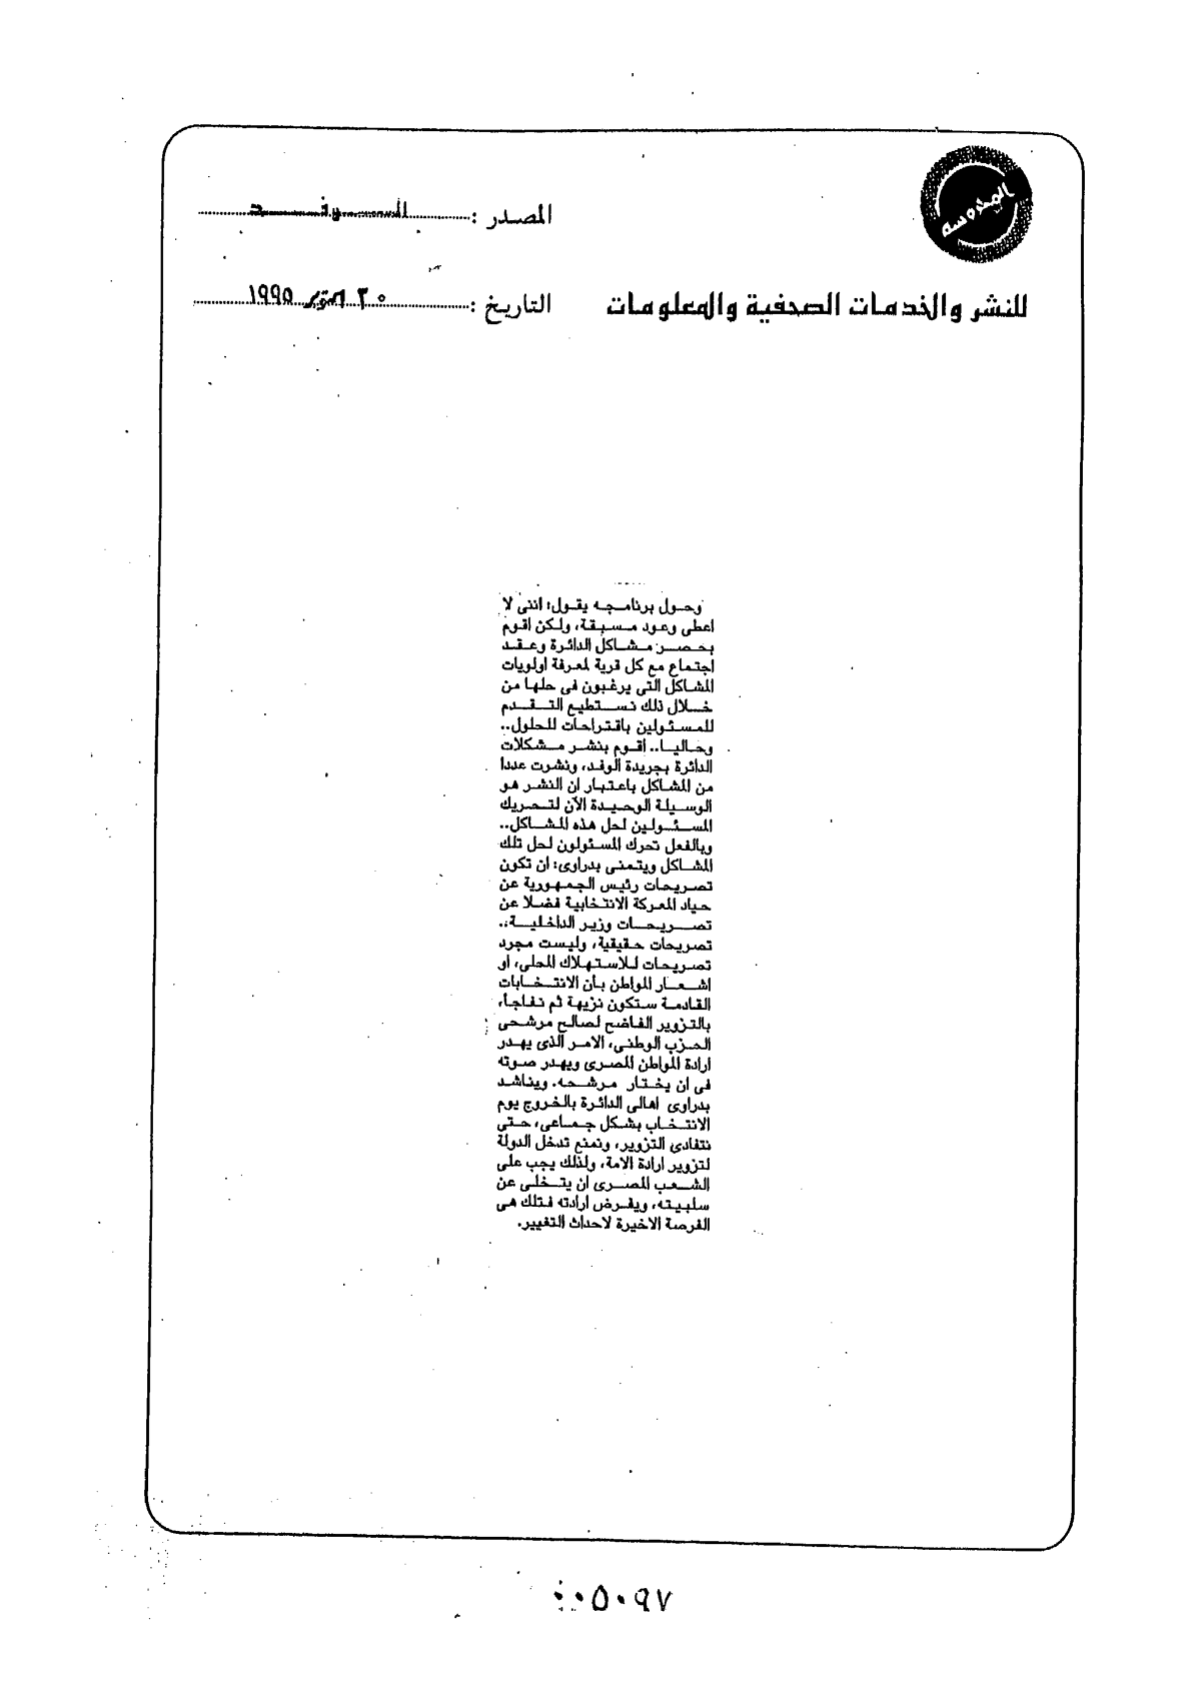 المصدر : الــوفــد
المدوسه
للنشر والخدمات الصحفية والمعلومات
التاريخ : ٢٠ اكتوبر ١٩٩٥
وحول برنامجه يقول: اننى لا
اعطى وعود مسبقة، ولكن اقوم
بحصر مشاكل الدائرة وعقد
اجتماع مع كل قرية لمعرفة اولويات
المشاكل التى يرغبون فى حلها من
خلال ذلك نستطيع التقدم
للمسئولين باقتراحات للحلول..
وحاليا.. اقوم بنشر مشكلات
الدائرة بجريدة الوفد، ونشرت عددا
من المشاكل باعتبار ان النشر هو
الوسيلة الوحيدة الآن لتحريك
المسئولين لحل هذه المشاكل..
وبالفعل تحرك المسئولون لحل تلك
المشاكل ويتمنى بدراوى: ان تكون
تصريحات رئيس الجمهورية عن
حياد المعركة الانتخابية فضلا عن
تصريحات وزير الداخلية..
تصريحات حقيقية، وليست مجرد
تصريحات للاستهلاك المحلى، او
اشعار المواطن بأن الانتخابات
القادمة ستكون نزيهة ثم نفاجأ،
بالتزوير الفاضح لصالح مرشحى
الحزب الوطنى، الامر الذى يهدر
ارادة المواطن المصرى ويهدر صوته
فى ان يختار مرشحه. ويناشد
بدراوى اهالى الدائرة بالخروج يوم
الانتخاب بشكل جماعى، حتى
نتفادى التزوير، ونمنع تدخل الدولة
لتزوير ارادة الامة، ولذلك يجب على
الشعب المصرى ان يتخلى عن
سلبيته، ويفرض ارادته فتلك هى
الفرصة الاخيرة لاحداث التغيير.
٠٠٥٠٩٧